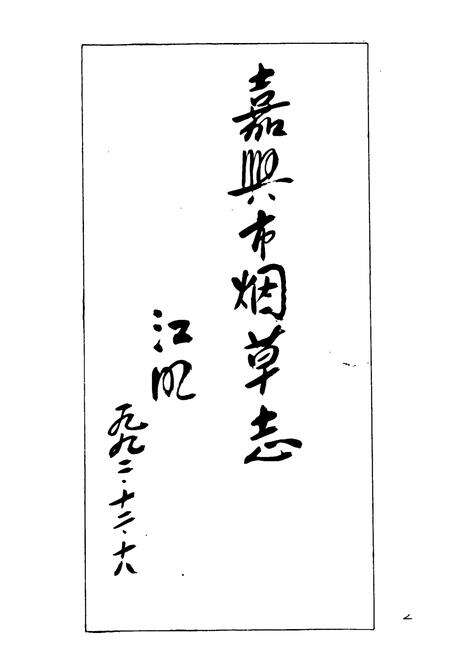 嘉興市烟草志
江明
一九九二·十二·十八